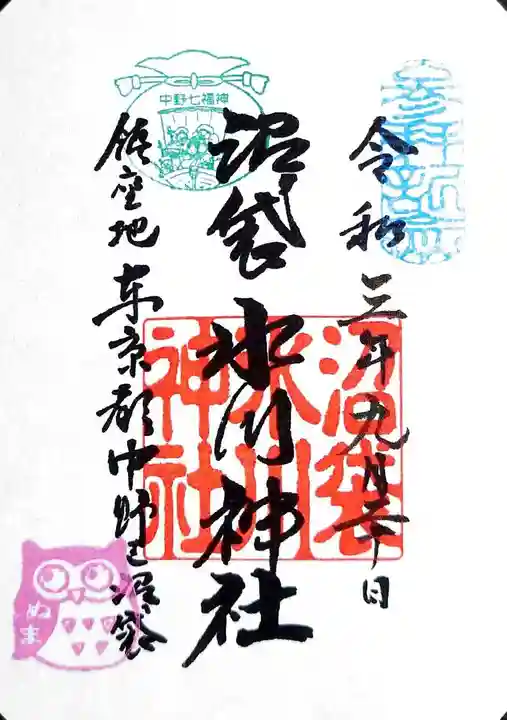 参拝記念
令和三年九月二十日
沼袋氷川神社
沼袋
氷川
神社
中野七福神
鎮座地 東京都中野区沼袋
ぬま